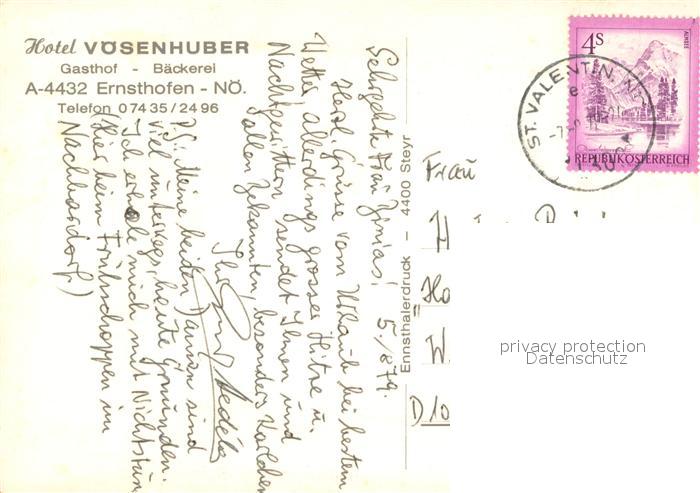 Hotel VÖSENHUBER
Gasthof - Bäckerei
A-4432 Ernsthofen - NÖ.
Telefon 0 74 35 / 24 96
5./8.79.
Sehrgehrte Frau
Herzl. Grüsse vom Urlaub bei bestem
Wetter, allerdings grosser Hitze u.
Nachtgewittern sendet Ihnen und
allen Bekannten, besonders Karlchen
Ihr
P.S. Meine beiden Damen sind
viel unterwegs, heute Gmunden.
Ich erhole mich mit Nichtstun
(Hier beim Frühschoppen im
Nachbardorf.)
Ennsthalerdruck — 4400 Steyr
4S
ALMSEE
REPUBLIK ÖSTERREICH
ST. VALENTIN, NÖ
Frau
H
Ho
W.
D 10
privacy protection
Datenschutz